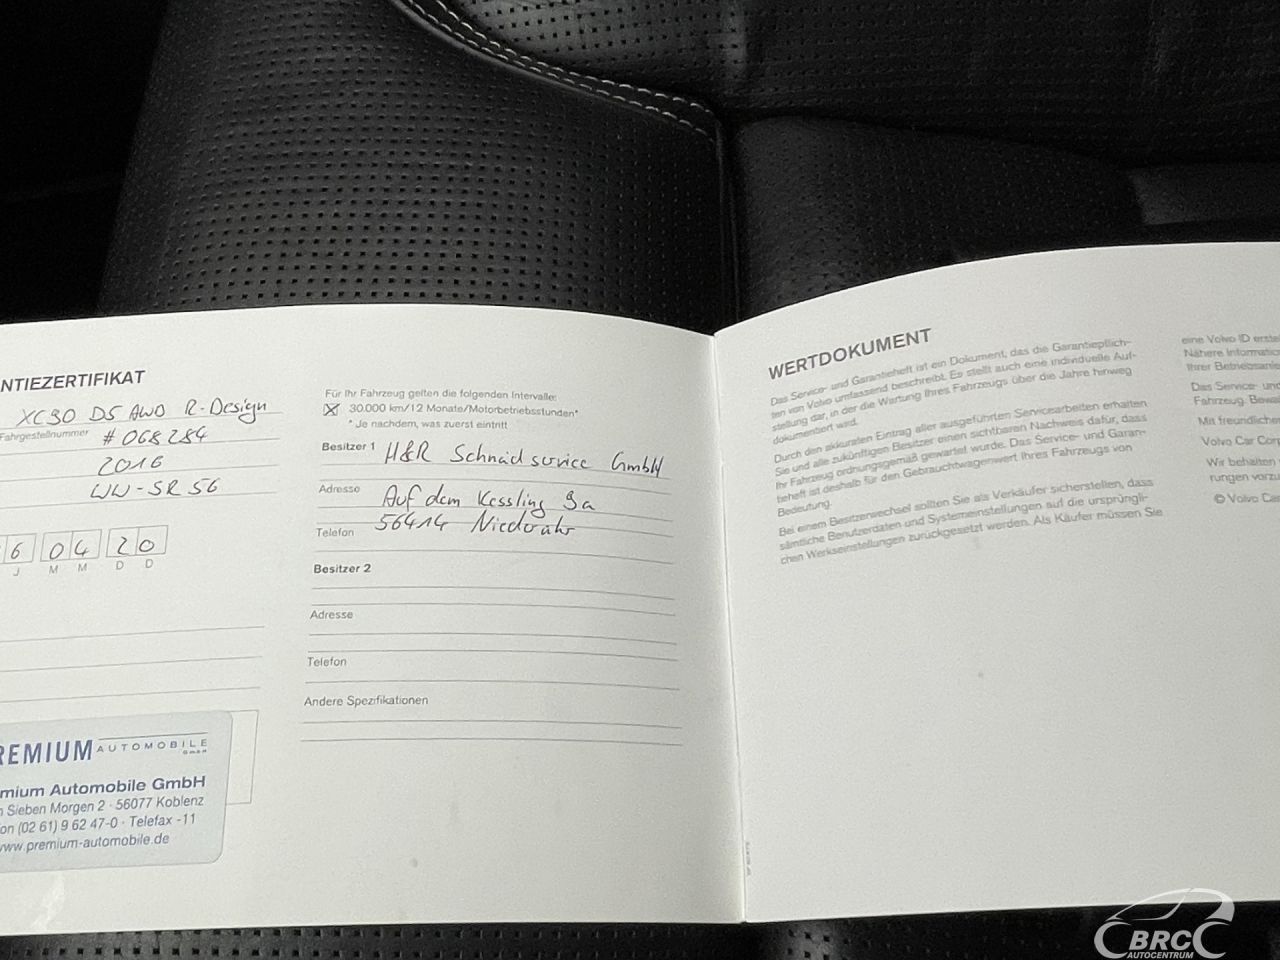 NTIEZERTIFIKAT
XC90 D5 AWD R-Design
Fahrgestellnummer # 068284
2016
WW-SR 56
6 04 20
J M M D D
REMIUM AUTOMOBILE
GmbH
mium Automobile GmbH
Sieben Morgen 2 · 56077 Koblenz
on (02 61) 9 62 47-0 · Telefax -11
www.premium-automobile.de
Für Ihr Fahrzeug gelten die folgenden Intervalle:
30.000 km/12 Monate/Motorbetriebsstunden*
* Je nachdem, was zuerst eintritt
Besitzer 1 H&R Schneidservice GmbH
Adresse Auf dem Kessling 9a
Telefon 56414 Niederahr
Besitzer 2
Adresse
Telefon
Andere Spezifikationen
WERTDOKUMENT
Das Service- und Garantieheft ist ein Dokument, das die Garantiepflich-
ten von Volvo umfassend beschreibt. Es stellt auch eine individuelle Auf-
stellung dar, in der die Wartung Ihres Fahrzeugs über die Jahre hinweg
dokumentiert wird.
Durch den akkuraten Eintrag aller ausgeführten Servicearbeiten erhalten
Sie und alle zukünftigen Besitzer einen sichtbaren Nachweis dafür, dass
Ihr Fahrzeug ordnungsgemäß gewartet wurde. Das Service- und Garan-
tieheft ist deshalb für den Gebrauchtwagenwert Ihres Fahrzeugs von
Bedeutung.
Bei einem Besitzerwechsel sollten Sie als Verkäufer sicherstellen, dass
sämtliche Benutzerdaten und Systemeinstellungen auf die ursprüngli-
chen Werkseinstellungen zurückgesetzt werden. Als Käufer müssen Sie
eine Volvo ID erstel
Nähere Information
Ihrer Betriebsanlei
Das Service- und
Fahrzeug. Bewa
Mit freundlicher
Volvo Car Corp
Wir behalten
rungen vorzu
© Volvo Car
BRC
AUTOCENTRUM